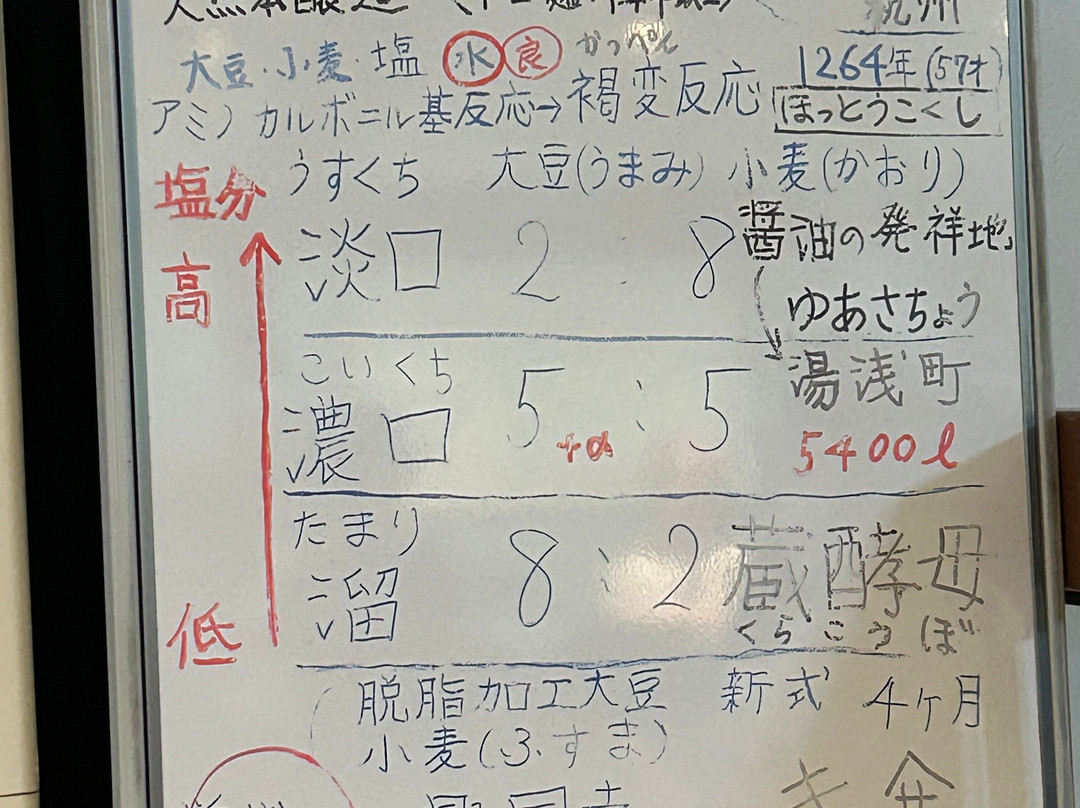 天然本醸造
九州
大豆・小麦・塩 水 良 かっぺん
1264年(57才
アミノカルボニル基反応→褐変反応
ほっとうこくし
塩分
うすくち 大豆(うまみ) 小麦(かおり)
高
淡口 2 : 8
醤油の発祥地
ゆあさちょう
湯浅町
こいくち
濃口 5+α : 5
5400ℓ
たまり
溜 8 : 2
蔵酵母
くらこうぼ
低
脱脂加工大豆 新式 4ヶ月
小麦(ふすま)